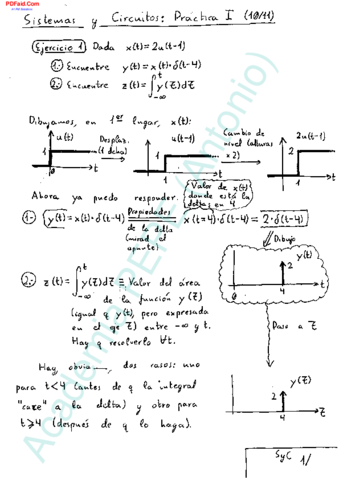 PDFaid.Com
Sistemas y Circuitos: Práctica I (10/11)
Ejercicio 1 Dada x(t)=2u(t-1)
1: Encuentre y(t)=x(t)·δ(t-4)
2: Encuentre z(t)=∫_{-∞}^{t} y(τ)dτ
Dibujamos, en 1er lugar, x(t):
u(t) Desplaz. (1 dcha) u(t-1) Cambio de nivel (alturas x2) 2u(t-1)
1 0 t 1 1 t 2 1 t
Ahora ya puedo responder.
Valor de x(t) donde está la delta: en 4
1- y(t)=x(t)·δ(t-4) = x(t=4)·δ(t-4) = 2·δ(t-4)
Propiedades de la delta (mirad el apunte)
Dibujo
y(t)
2
0 4 t
2: z(t)=∫_{-∞}^{t} y(τ)dτ ≡ Valor del área
de la función y(τ)
(igual q y(t), pero expresada
en el eje τ) entre -∞ y t.
Hay q resolverlo ∀t.
Paso a τ
Hay, obvia—, dos casos: uno
para t<4 (antes de q la integral
"cace" a la delta) y otro para
t≥4 (después de q lo haga).
y(τ)
2
4 τ
Academia PEFE (Antonio)
SyC 1/